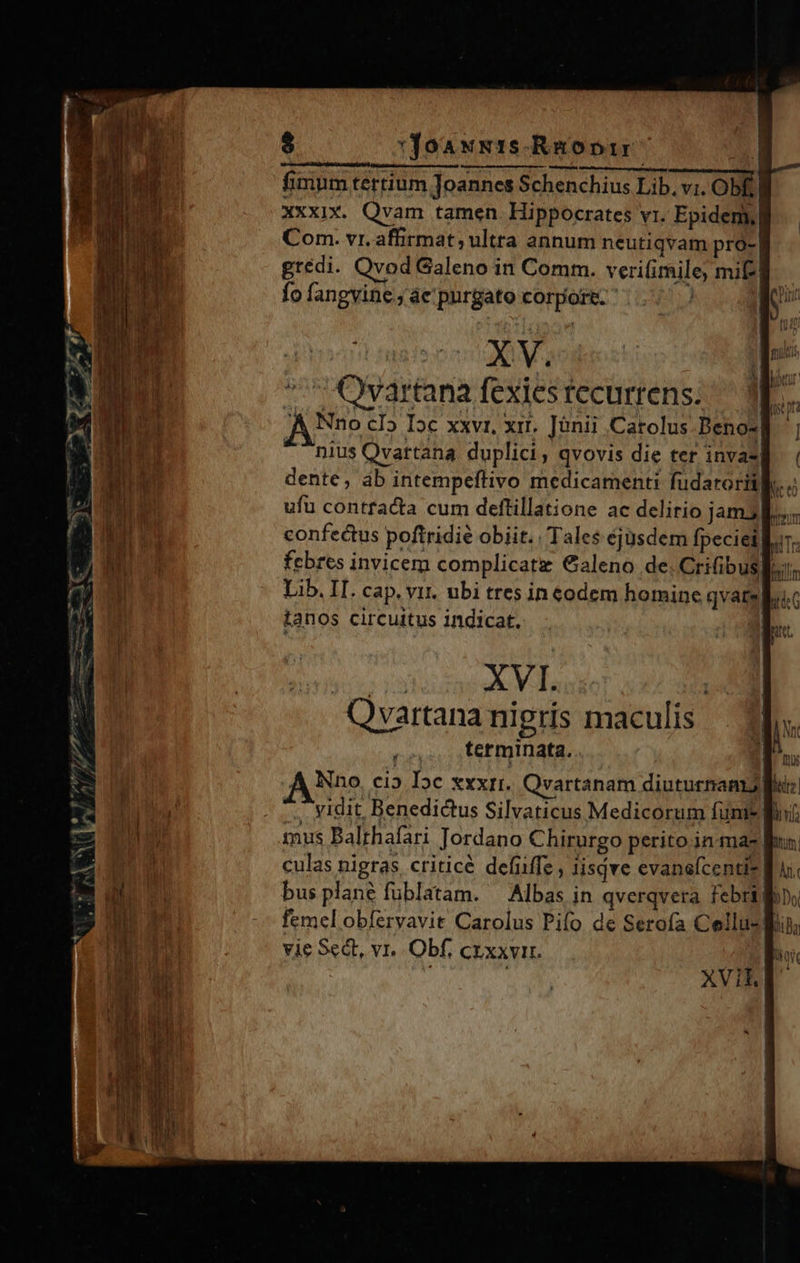 8 JOANNIS RHODII
ſimum tertium Joannes Schenchius Lib. VI. Obſ.
XXXIX. Qvam tamen Hippocrates VI. Epidem.
Com. VI. affirmat, ultra annum neutiqvam pro-
gredi. Qvod Galeno in Comm. veriſimile, miſ-
ſo ſangvine, ac purgato corpore.
XV.
Qvartana ſexies recurrens.
ANno cIɔ Iɔc XXVI, XII. Junii Carolus Beno-
nius Qvartana duplici, qvovis die ter inva-
dente, ab intempeſtivo medicamenti ſudatorii
uſu contracta cum deſtillatione ac delirio jam
confectus poſtridiè obiit. Tales ejusdem ſpeciei
febres invicem complicatæ Galeno de Criſibus
Lib. II. cap. VII. ubi tres in eodem homine qvar-
tanos circuitus indicat.
XVI.
Qvartana nigris maculis
terminata.
ANno cIɔ Iɔc XXXII. Qvartanam diuturnam
vidit Benedictus Silvaticus Medicorum ſum-
mus Balthaſari Jordano Chirurgo perito in ma-
culas nigras criticè deſiiſſe, iisqve evaneſcenti-
bus planè ſublatam. Albas in qverqvera febri
ſemel obſervavit Carolus Piſo de Seroſa Cellu-
vie Sect, VI. Obſ. CLXXVII.
XVII.